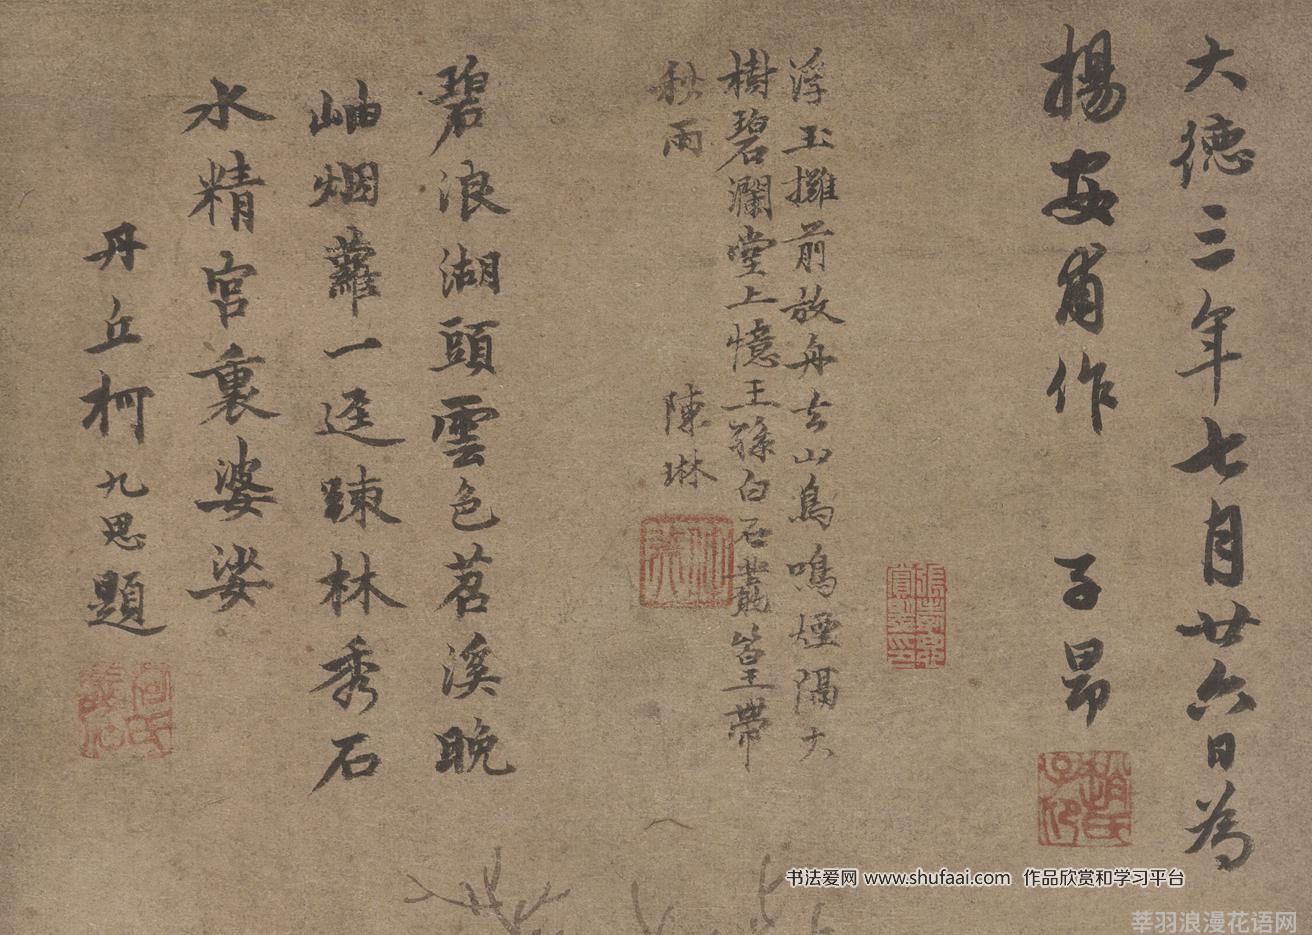 大德三年七月廿六日為
揚安甫作 子昂
趙氏子昂
浮玉攤前放舟去山鳥鳴煙隔大
樹碧瀾堂上憶王孫白石叢篁帶
秋雨 陳琳
碧浪湖頭雲色茗溪晚
岫烟蘿一逕踈林秀石
水精宮裏婆娑
丹丘柯九思題
柯氏敬仲
书法爱网 www.shufaai.com 作品欣赏和学习平台
莘羽浪漫花语网